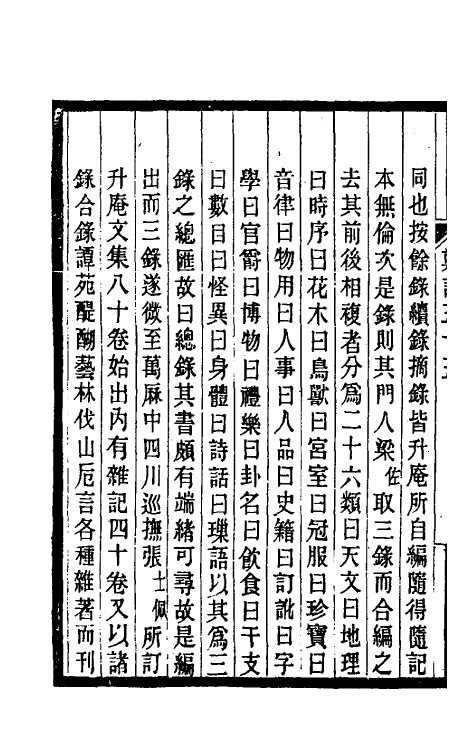 同也按餘錄續錄摘錄皆升庵所自編隨得隨記
本無倫次是錄則其門人梁佐取三錄而合編之
去其前後相複者分爲二十六類曰天文曰地理
曰時序曰花木曰鳥獸曰宮室曰冠服曰珍寶曰
音律曰物用曰人事曰人品曰史籍曰訂訛曰字
學曰官爵曰博物曰禮樂曰卦名曰飲食曰干支
曰數目曰怪異曰身體曰詩話曰璅語以其爲三
錄之總匯故曰總錄其書頗有端緒可尋故是編
出而三錄遂微至萬厤中四川巡撫張士佩所訂
升庵文集八十卷始出內有雜記四十卷又以諸
錄合錄譚苑醍醐藝林伐山卮言各種雜著而刊